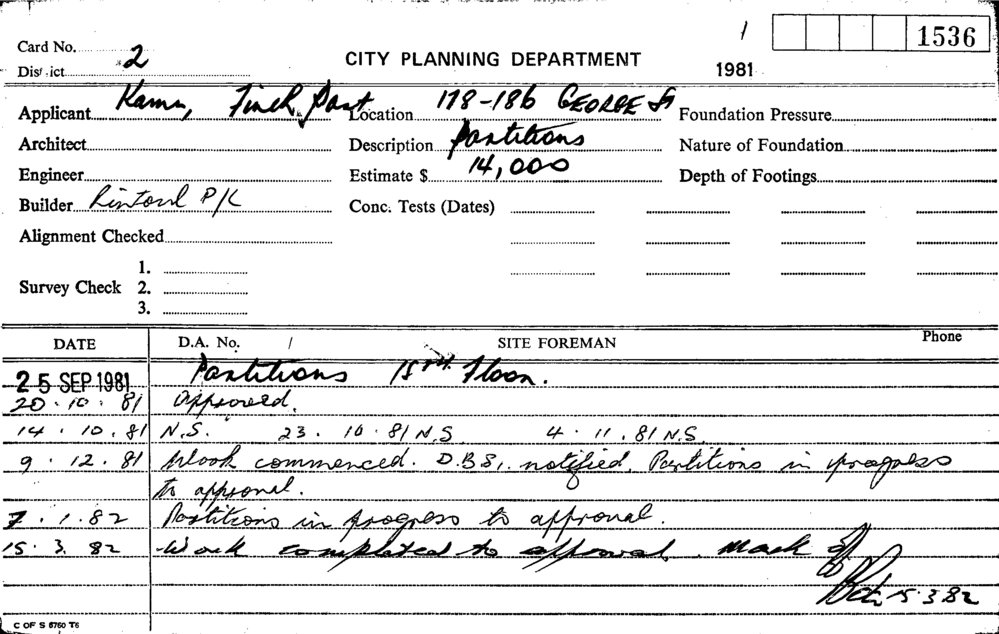 / 1536
Card No. 2
District
CITY PLANNING DEPARTMENT
1981
Applicant Finch, Part Location 178-186 GEORGE St Foundation Pressure
Architect Description Partitions Nature of Foundation
Engineer Estimate $ 14,000 Depth of Footings
Builder Rintoul P/L Conc. Tests (Dates)
Alignment Checked
1.
Survey Check 2.
3.
DATE D.A. No. / SITE FOREMAN Phone
25 SEP 1981 Partitions 15th Floor.
20.10.81 Approved.
14.10.81 N.S. 23.10.81 N.S 4.11.81 N.S.
9.12.81 Work commenced. D.B.S. notified. Partitions in progress
to approval.
7.1.82 Partitions in progress to approval.
15.3.82 Work completed to approval. Mark off
15.3.82
C OF S 6760 T6